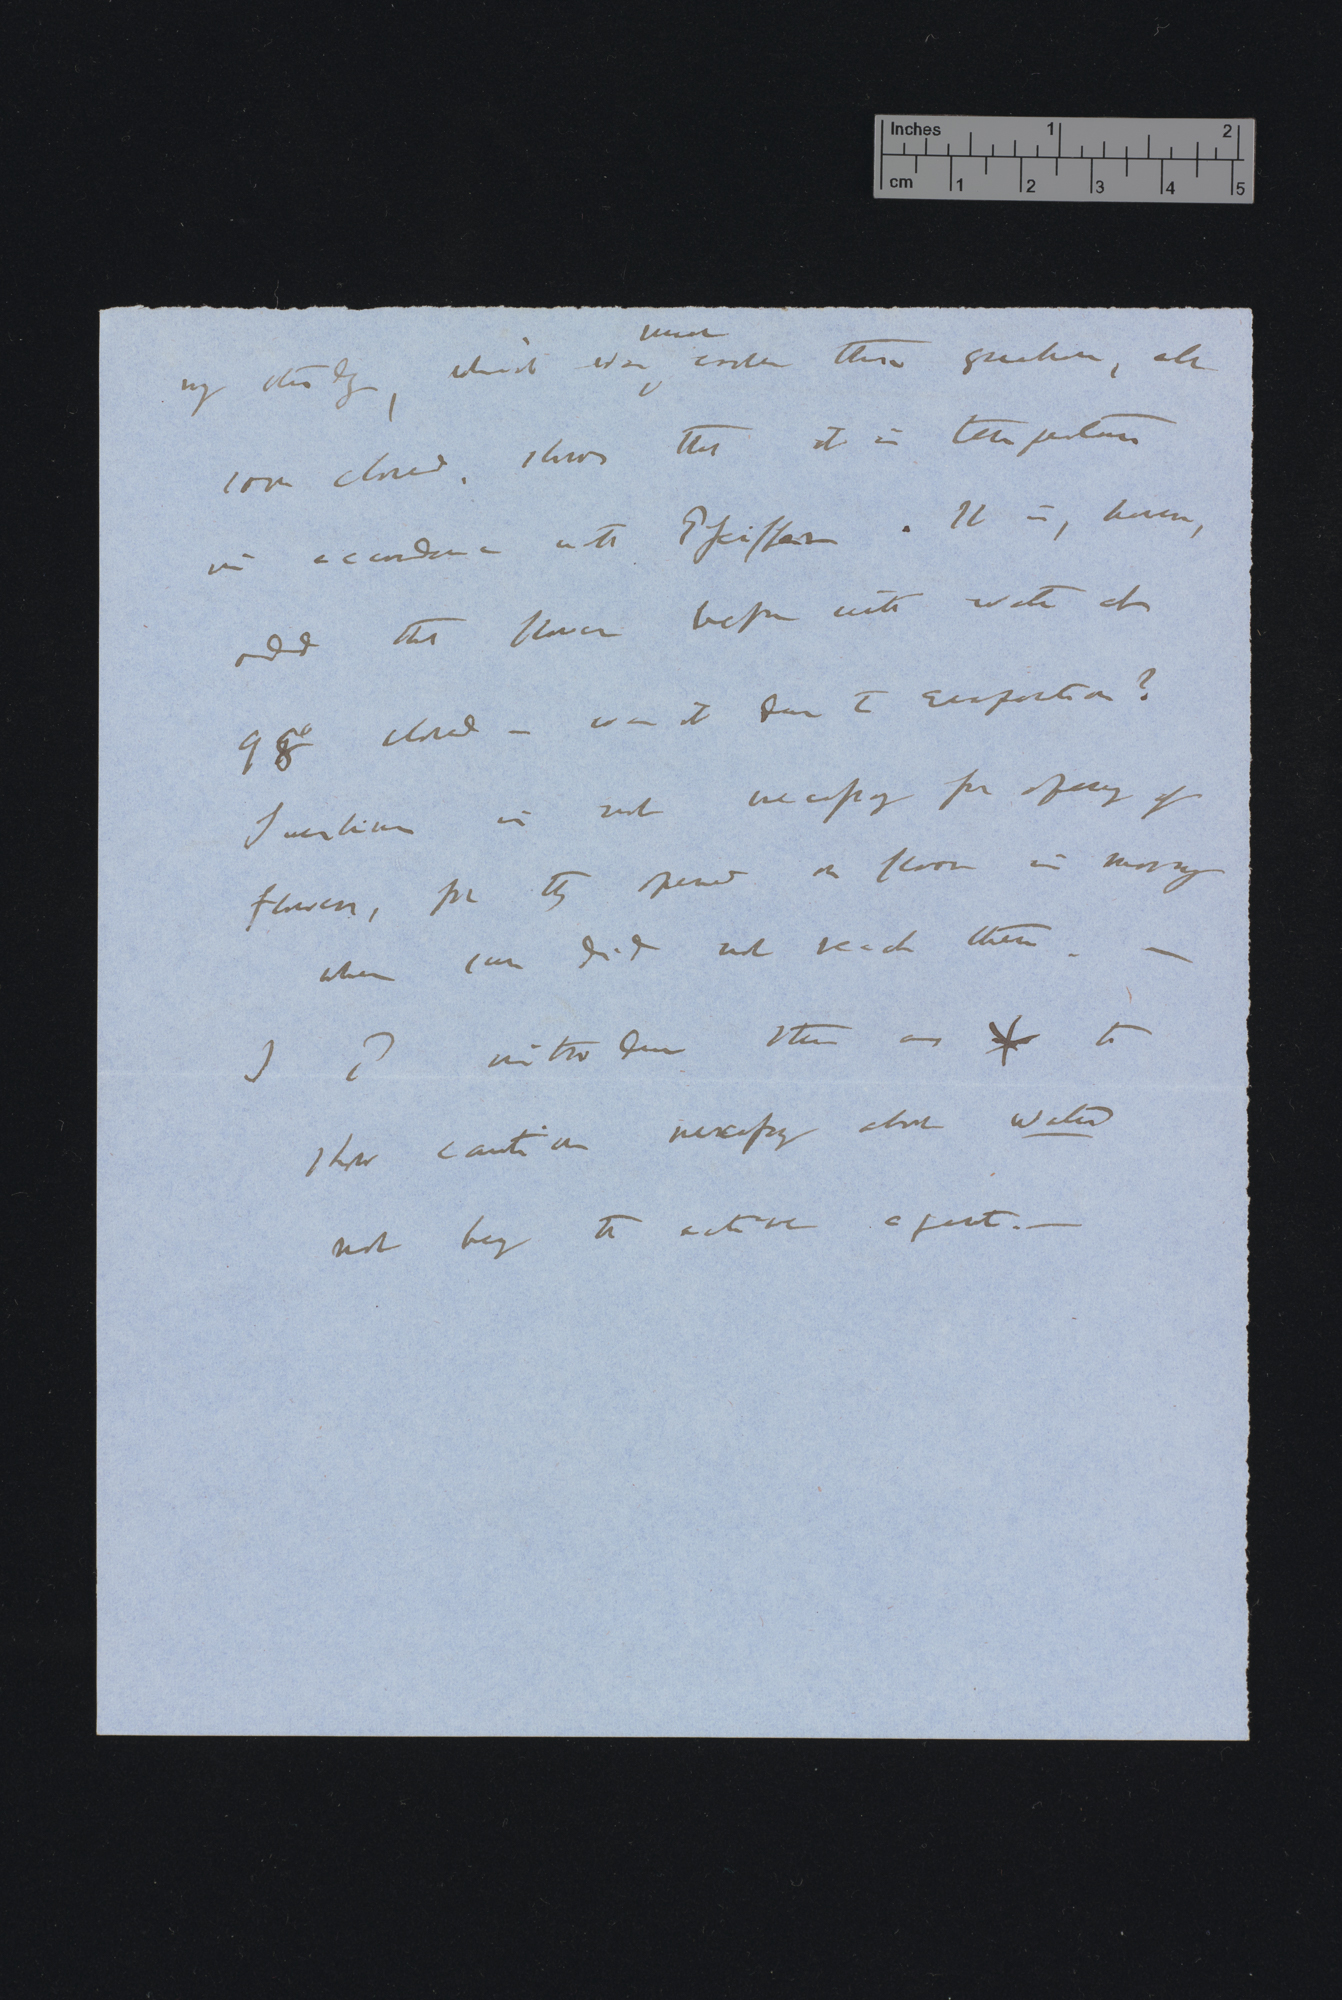 Inches 1 2
cm 1 2 3 4 5
much
my study, which was cooler than greenhouse, also
soon closed, shows that it is temperature
in accordance with Pfeiffer. It is, however,
odd that flower before with water at
98° closed — was it due to evaporation?
is not necessary for opening of
flowers, for they opened on floor in morning
when sun did not reach them. —
I introduce them as to
show caution necessary about water
not being the active agent. —